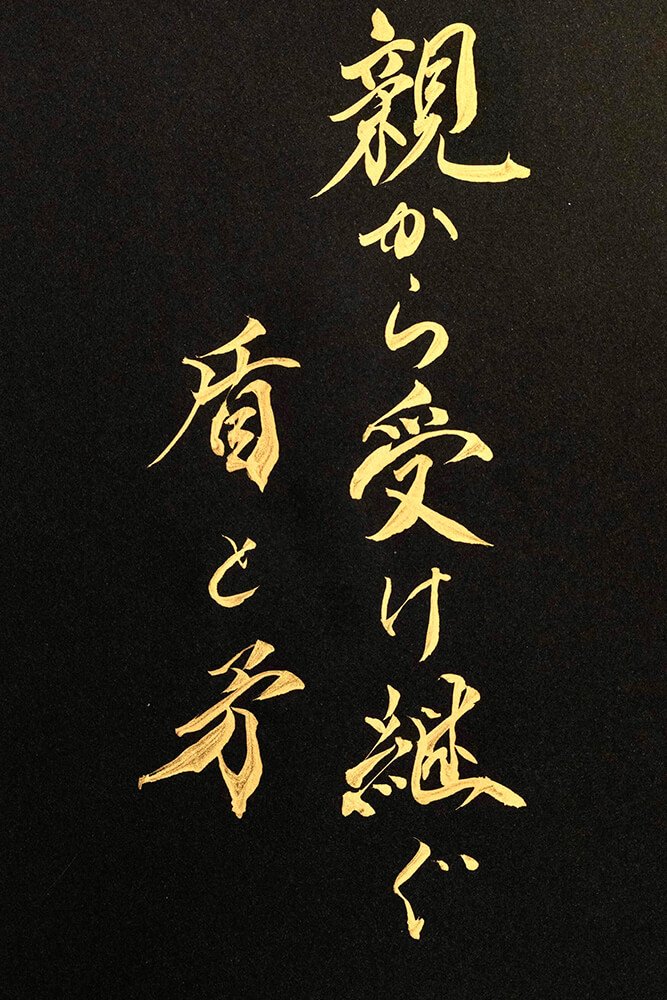 親から受け継ぐ
盾と矛